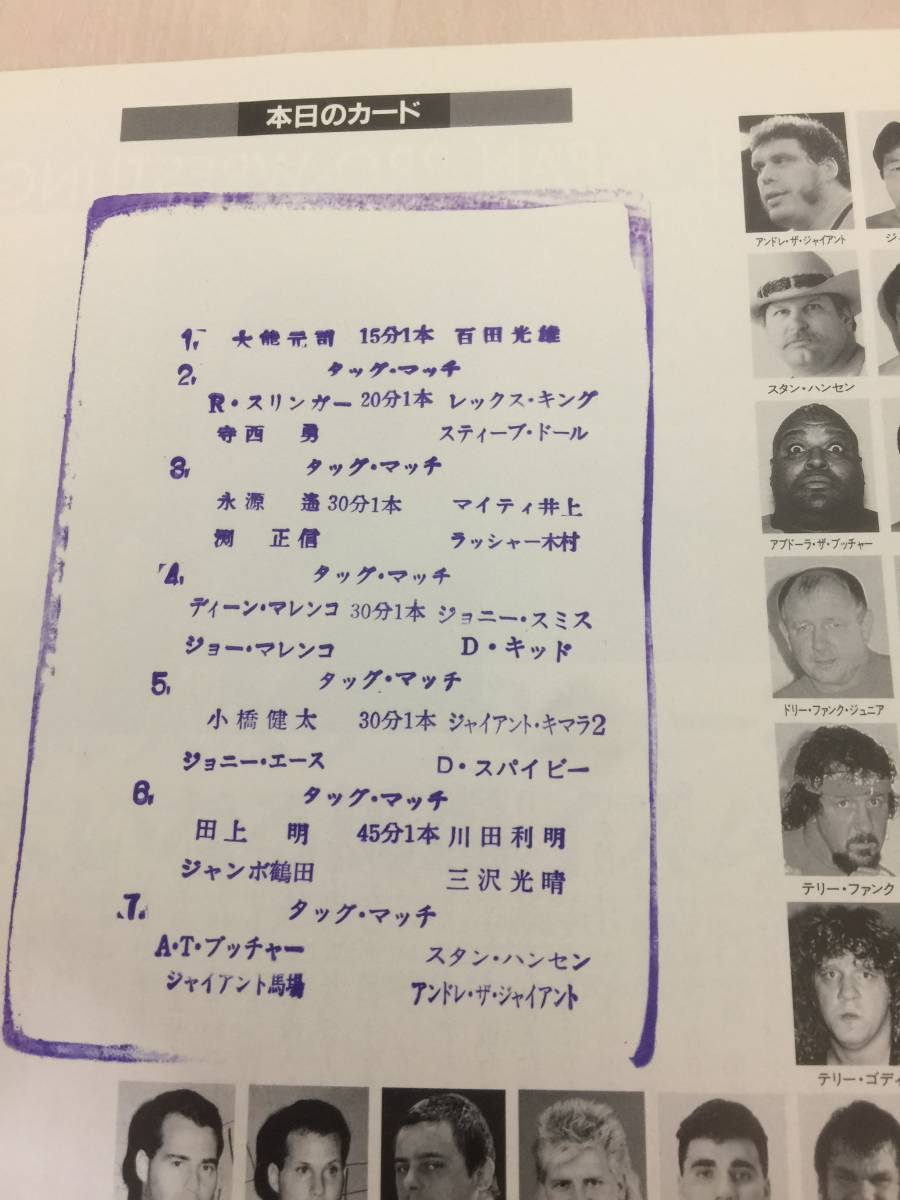 本日のカード
1. 大熊元司 15分1本 百田光雄
2. タッグ・マッチ
R・スリンガー 20分1本 レックス・キング
寺西 勇 スティーブ・ドール
3. タッグ・マッチ
永源 遙 30分1本 マイティ井上
渕 正信 ラッシャー木村
4. タッグ・マッチ
ディーン・マレンコ 30分1本 ジョニー・スミス
ジョー・マレンコ D・キッド
5. タッグ・マッチ
小橋健太 30分1本 ジャイアント・キマラ2
ジョニー・エース D・スパイビー
6. タッグ・マッチ
田上 明 45分1本 川田利明
ジャンボ鶴田 三沢光晴
7. タッグ・マッチ
A・T・ブッチャー スタン・ハンセン
ジャイアント馬場 アンドレ・ザ・ジャイアント
アンドレ・ザ・ジャイアント
スタン・ハンセン
アブドーラ・ザ・ブッチャー
ドリー・ファンク・ジュニア
テリー・ファンク
テリー・ゴディ